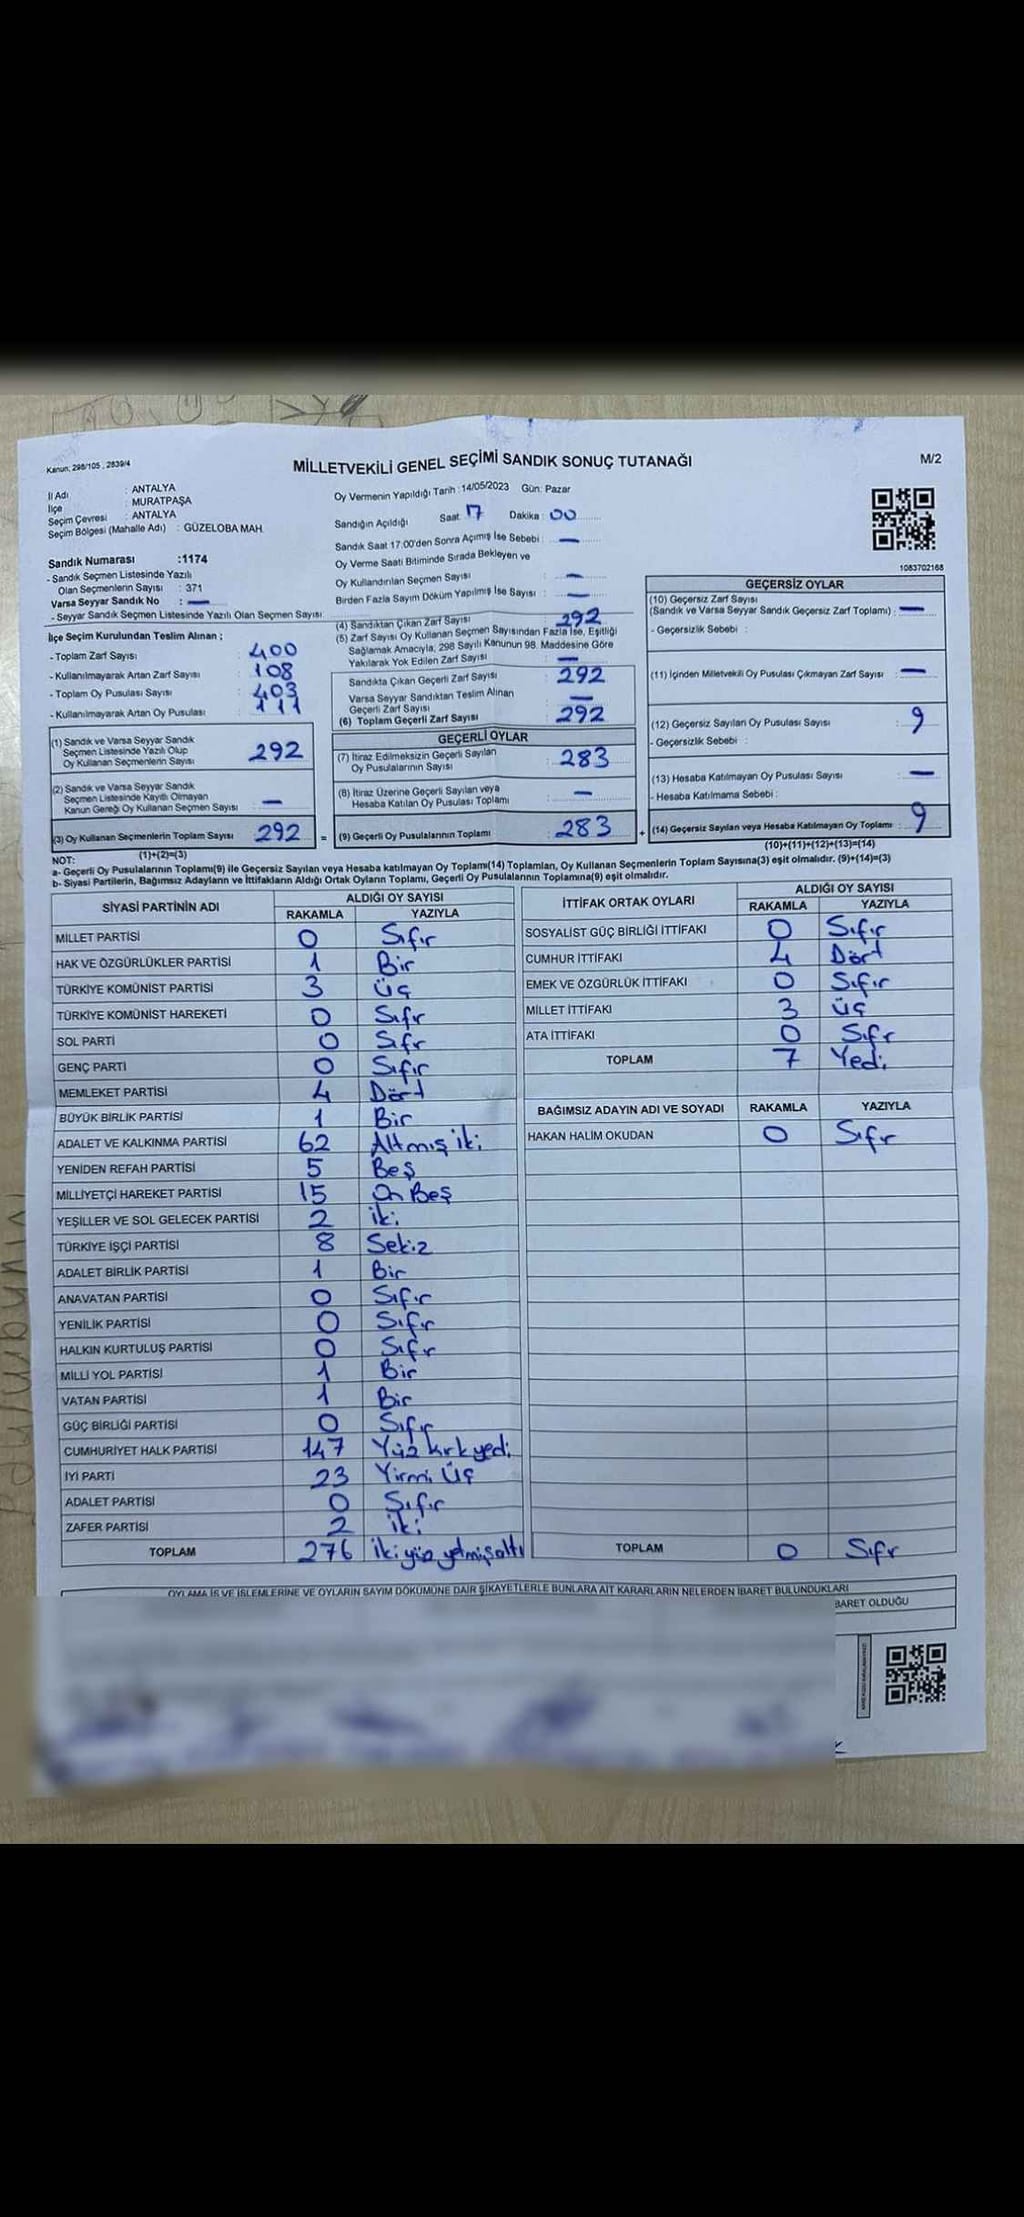 Kanun: 298/105 , 2839/4
MİLLETVEKİLİ GENEL SEÇİMİ SANDIK SONUÇ TUTANAĞI
M/2
İl Adı : ANTALYA
İlçe : MURATPAŞA
Seçim Çevresi : ANTALYA
Seçim Bölgesi (Mahalle Adı) : GÜZELOBA MAH.
Oy Vermenin Yapıldığı Tarih : 14/05/2023 Gün: Pazar
Sandığın Açıldığı Saat: 17 Dakika : 00
Sandık Saat 17:00'den Sonra Açımış İse Sebebi : —
Oy Verme Saati Bitiminde Sırada Bekleyen ve
Oy Kullandırılan Seçmen Sayısı : —
Birden Fazla Sayım Döküm Yapılmış İse Sayısı : —
1083702168
Sandık Numarası :1174
- Sandık Seçmen Listesinde Yazılı
Olan Seçmenlerin Sayısı : 371
Varsa Seyyar Sandık No : —
- Seyyar Sandık Seçmen Listesinde Yazılı Olan Seçmen Sayısı:
İlçe Seçim Kurulundan Teslim Alınan ;
- Toplam Zarf Sayısı : 400
- Kullanılmayarak Artan Zarf Sayısı : 108
- Toplam Oy Pusulası Sayısı : 403
- Kullanılmayarak Artan Oy Pusulası : 111
(1) Sandık ve Varsa Seyyar Sandık
Seçmen Listesinde Yazılı Olup
Oy Kullanan Seçmenlerin Sayısı : 292
(2) Sandık ve Varsa Seyyar Sandık
Seçmen Listesinde Kayıtlı Olmayan
Kanun Gereği Oy Kullanan Seçmen Sayısı : —
(3) Oy Kullanan Seçmenlerin Toplam Sayısı : 292 =
(1)+(2)=(3)
(4) Sandıktan Çıkan Zarf Sayısı : 292
(5) Zarf Sayısı Oy Kullanan Seçmen Sayısından Fazla İse, Eşitliği
Sağlamak Amacıyla, 298 Sayılı Kanunun 98. Maddesine Göre
Yakılarak Yok Edilen Zarf Sayısı : —
Sandıkta Çıkan Geçerli Zarf Sayısı : 292
Varsa Seyyar Sandıktan Teslim Alınan
Geçerli Zarf Sayısı : —
(6) Toplam Geçerli Zarf Sayısı : 292
GEÇERLİ OYLAR
(7) İtiraz Edilmeksizin Geçerli Sayılan
Oy Pusulalarının Sayısı : 283
(8) İtiraz Üzerine Geçerli Sayılan veya
Hesaba Katılan Oy Pusulası Toplamı : —
(9) Geçerli Oy Pusulalarının Toplamı : 283 +
GEÇERSİZ OYLAR
(10) Geçersiz Zarf Sayısı
(Sandık ve Varsa Seyyar Sandık Geçersiz Zarf Toplamı) : —
- Geçersizlik Sebebi :
(11) İçinden Milletvekili Oy Pusulası Çıkmayan Zarf Sayısı : —
(12) Geçersiz Sayılan Oy Pusulası Sayısı : 9
- Geçersizlik Sebebi :
(13) Hesaba Katılmayan Oy Pusulası Sayısı : —
- Hesaba Katılmama Sebebi :
(14) Geçersiz Sayılan veya Hesaba Katılmayan Oy Toplamı : 9
(10)+(11)+(12)+(13)=(14)
NOT:
a- Geçerli Oy Pusulalarının Toplamı(9) ile Geçersiz Sayılan veya Hesaba katılmayan Oy Toplamı(14) Toplamları, Oy Kullanan Seçmenlerin Toplam Sayısına(3) eşit olmalıdır. (9)+(14)=(3)
b- Siyasi Partilerin, Bağımsız Adayların ve İttifakların Aldığı Ortak Oyların Toplamı, Geçerli Oy Pusulalarının Toplamına(9) eşit olmalıdır.
SİYASİ PARTİNİN ADI ALDIĞI OY SAYISI
RAKAMLA YAZIYLA
MİLLET PARTİSİ 0 Sıfır
HAK VE ÖZGÜRLÜKLER PARTİSİ 1 Bir
TÜRKİYE KOMÜNİST PARTİSİ 3 Üç
TÜRKİYE KOMÜNİST HAREKETİ 0 Sıfır
SOL PARTİ 0 Sıfır
GENÇ PARTİ 0 Sıfır
MEMLEKET PARTİSİ 4 Dört
BÜYÜK BİRLİK PARTİSİ 1 Bir
ADALET VE KALKINMA PARTİSİ 62 Altmış iki
YENİDEN REFAH PARTİSİ 5 Beş
MİLLİYETÇİ HAREKET PARTİSİ 15 On Beş
YEŞİLLER VE SOL GELECEK PARTİSİ 2 iki
TÜRKİYE İŞÇİ PARTİSİ 8 Sekiz
ADALET BİRLİK PARTİSİ 1 Bir
ANAVATAN PARTİSİ 0 Sıfır
YENİLİK PARTİSİ 0 Sıfır
HALKIN KURTULUŞ PARTİSİ 0 Sıfır
MİLLİ YOL PARTİSİ 1 Bir
VATAN PARTİSİ 1 Bir
GÜÇ BİRLİĞİ PARTİSİ 0 Sıfır
CUMHURİYET HALK PARTİSİ 147 Yüz kırk yedi
İYİ PARTİ 23 Yirmi Üç
ADALET PARTİSİ 0 Sıfır
ZAFER PARTİSİ 2 iki
TOPLAM 276 iki yüz yetmiş altı
İTTİFAK ORTAK OYLARI ALDIĞI OY SAYISI
RAKAMLA YAZIYLA
SOSYALİST GÜÇ BİRLİĞİ İTTİFAKI 0 Sıfır
CUMHUR İTTİFAKI 4 Dört
EMEK VE ÖZGÜRLÜK İTTİFAKI 0 Sıfır
MİLLET İTTİFAKI 3 üç
ATA İTTİFAKI 0 Sıfır
TOPLAM 7 Yedi
BAĞIMSIZ ADAYIN ADI VE SOYADI RAKAMLA YAZIYLA
HAKAN HALİM OKUDAN 0 Sıfır
TOPLAM 0 Sıfır
OYLAMA İŞ VE İŞLEMLERİNE VE OYLARIN SAYIM DÖKÜMÜNE DAİR ŞİKAYETLERLE BUNLARA AİT KARARLARIN NELERDEN İBARET BULUNDUKLARI
BARET OLDUĞU